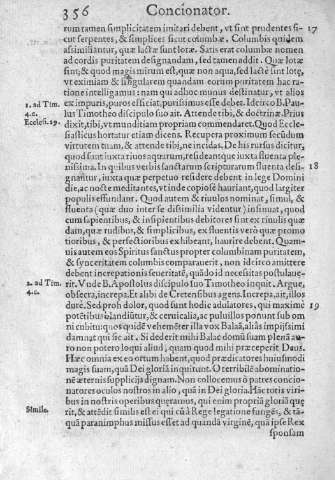 356 Concionator.
rum tamen simplicitatem imitari debent, vt sint prudentes si- 17
cut serpentes, & simplices sicut columbæ. Columbis quidem
assimilantur, quæ lacte sunt lotæ. Satis erat columbæ nomen
ad cordis puritatem designandam, sed tamen addit. Quæ lotæ
sint; & quod magis mirum est, quæ non aqua, sed lacte sint lotę,
vt eximiam & singularem quandam eorum puritatem hac ra-
tione intelligamus: nam qui ad hoc munus destinatur, vt alios
1. ad Tim. ex impuris, puros efficiat, purissimus esse debet. Idcirco B. Pau-
4.c. lus Timotheo discipulo suo ait. Attende tibi, & doctrinæ. Prius
Eccles. 29. dixit, tibi, vt munditiam propriam commendaret. Quod Eccle-
siasticus hortatur etiam dicens. Recupera proximum secūdum
virtutem tuam, & attende tibi, ne incidas. De his rursus dicitur,
quod sunt iuxta riuos aquarum, residentque iuxta fluenta ple-
nissima. In quibus verbis sanctarum scripturarum fluenta desi- 18
gnantur, iuxta quæ perpetuo residere debent in lege Domini
die, ac nocte meditantes, vt inde copiose hauriant, quod largiter
populis effundant. Quod autem & riuulos nominat, simul, &
fluenta (quæ duo inter se dissimilia videntur) insinuat, quod
cum sapientibus, & insipientibus debitores sint ex riuulis quæ
dam, quæ rudibus, & simplicibus, ex fluentis verò quæ promo
tioribus, & perfectioribus exhibeant, haurire debent. Quam-
uis autem eos Spiritus sanctus propter columbinam puritatem,
& synceritatem columbis comparauerit, non idcirco amittere
debent increpationis seueritatē, quādo id necessitas postulaue-
2. ad Tim. rit. Vnde B. Apostolus discipulo suo Timotheo inquit. Argue,
4.c. obsecra, increpa. Et alibi de Cretensibus agens. Increpa, ait, illos
durè. Sed proh dolor, quod sunt hodie adulatores, qui maxime 19
potētibus blandiūtur, & ceruicalia, ac puluillos ponunt sub om
ni cubito; quos quidē vehemēter illa vox Balaā, aliās impijssimi
damnat qui sic ait. Si dederit mihi Balac domū suam plenā au-
ro non potero loqui aliud, quam quod mihi præceperit Deus.
Hæc omnia ex eo ortum habent, quod prædicatores huiusmodi
magis suam, quā Dei gloriā inquirunt. O terribilē abominatio-
nē æternis supplicijs dignam. Non collocemus ô patres concio-
natores oculos nostros in alio, quā in Dei gloria. Hāc totis viri-
bus in nostris operibus queramus, qui enim propriā gloriā quę
Simile. rit, & attēdit similis est ei qui cū à Rege legatione fungēs, & tā-
quā paranimphus missus esset ad quandā virginē, quā ipse Rex
sponsam